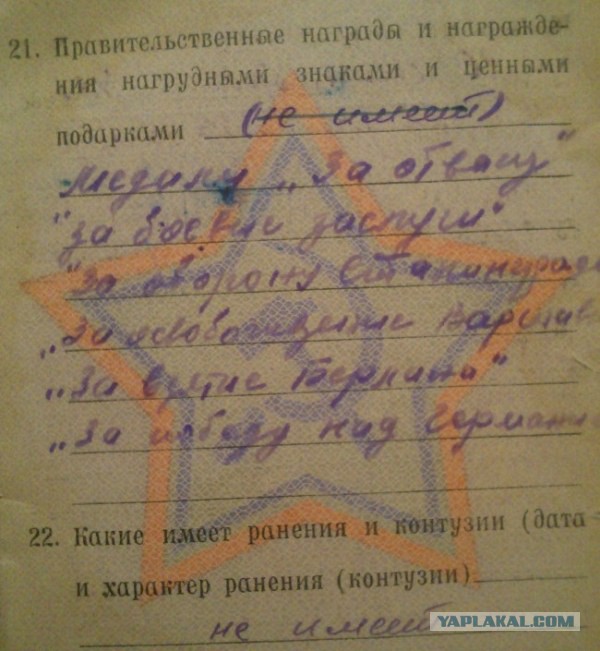 21. Правительственные награды и награжде-
ния нагрудными знаками и ценными
подарками (не имеет)
медали „За отвагу"
"За боевые заслуги"
"За оборону Сталинграда
„За освобождение Варшав
„За взятие Берлина"
„За победу над Германи
22. Какие имеет ранения и контузии (дата
и характер ранения (контузии)
не имеет
YAPLAKAL.COM